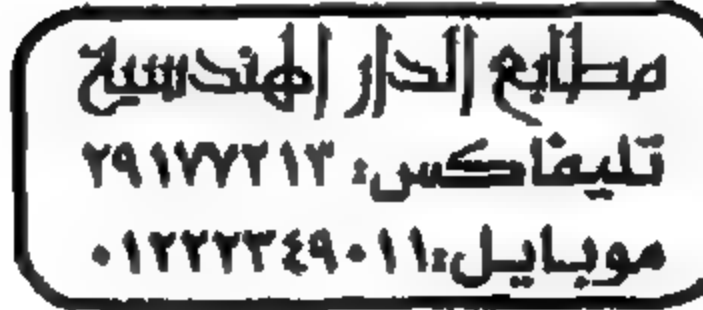 مطابع الدار الهندسية
تليفاكس: ٢٩١٧٧٢١٣
موبايل:٠١٢٢٢٣٤٩٠١١